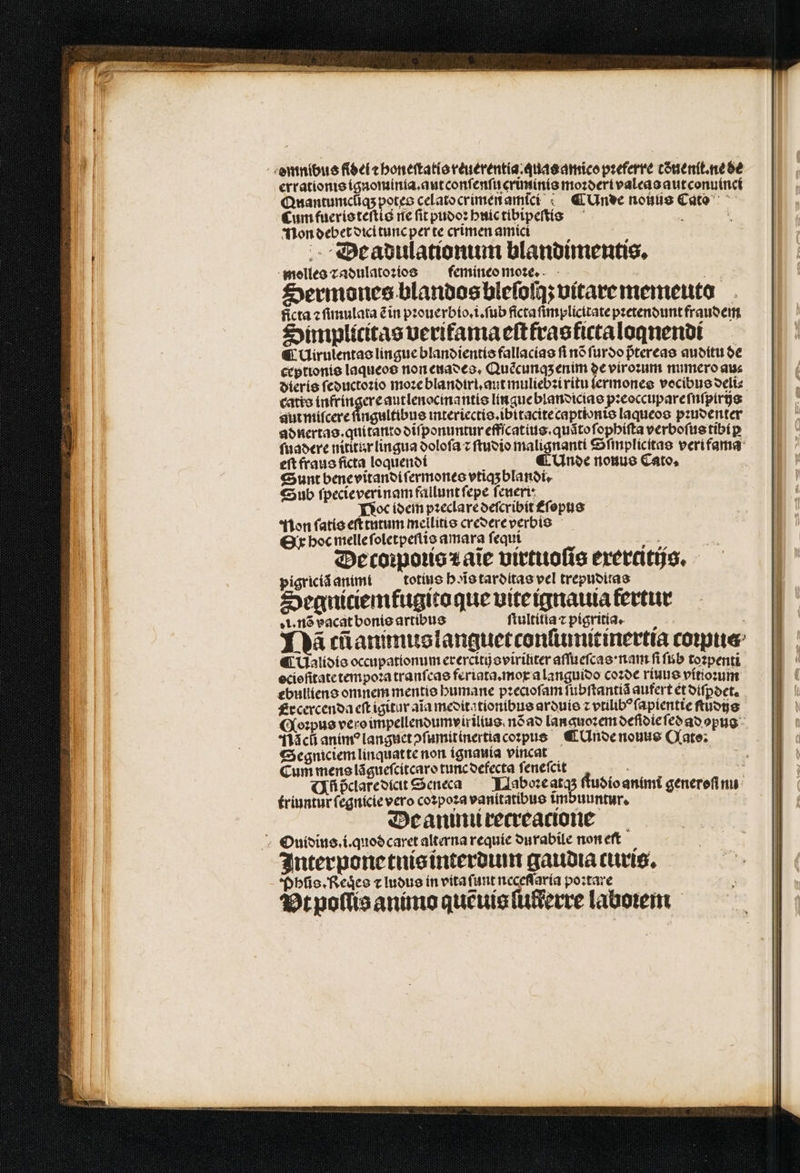 omnibus fidei ⁊ honeſtatis reuerentia. quas amico pꝛeferre cõuenit. ne de
errationis ignominia. aut conſenſu criminis moꝛderi valeas aut conuinci
Quantumcũqꝫ potes celato crimen amici ¶ Unde nouus Cato
Cum fueris teſtis ne ſit pudoꝛ huic tibi peſtis
Non debet dici tunc per te crimen amici
De adulationum blandimentis.
molles ⁊ adulatoꝛios femineo moꝛe.
Sermones blandos bleſoſqꝫ vitare memento
ficta ⁊ ſimulata ē in pꝛouerbio. i. ſub ficta ſimplicitate pꝛetendunt fraudem
Simplicitas veri fama eſt fras ficta loquendi
¶ Uirulentas lingue blandientis fallacias ſi nõ ſurdo p̃tereas auditu de
ceptionis laqueos non euades. Quēcunqꝫ enim de viroꝛum numero au⸗
dieris ſeductoꝛio moꝛe blandiri. aut muliebꝛi ritu ſermones vocibus deli⸗
catis infringere aut lenocinantis lingue blandicias pꝛeoccupare ſuſpirijs
aut miſcere ſingultibus interiectis. ibi tacite captionis laqueos pꝛudenter
aduertas. qui tanto diſponuntur efficatius. quãto ſophiſta verboſus tibi ꝑ
ſuadere nititur lingua doloſa ⁊ ſtudio malignanti Simplicitas veri fama
eſt fraus ficta loquendi ¶ Unde nouus Cato.
Sunt bene vitandi ſermones vtiqꝫ blandi.
Sub ſpecie veri nam fallunt ſepe ſeueri
Hoc idem pꝛeclare deſcribit Eſopus
Non ſatis eſt tutum mellitis credere verbis
Ex hoc melle ſolet peſtis amara ſequi
De coꝛpoꝛis ⁊ aīe virtuoſis exercitijs.
pigriciã animi totius hoīs tarditas vel trepuditas
Segniciem fugito que vite ignauia fertur
.i. nõ vacat bonis artibus ſtultitia ⁊ pigritia.
Nã cũ animus languet conſumit inertia coꝛpus
¶ Ualidis occupationum exercitijs viriliter aſſueſcas. nam ſi ſub toꝛpenti
ocioſitate tempoꝛa tranſeas feriata. mox a languido coꝛde riuus vitioꝛum
ebulliens omnem mentis humane pꝛecioſam ſubſtantiã aufert et diſpdet.
Excercenda eſt igitur aīa meditationibus arduis ⁊ vtilibꝰ ſapientie ſtudijs
Coꝛpus vero impellendum virilius. nõ ad languoꝛem deſidie ſed ad opus
Nã cũ animꝰ languet ↄſumit inertia coꝛpus ¶ Unde nouus Cato:
Segniciem linquat te non ignauia vincat
Cum mens lãgueſcit caro tunc defecta ſeneſcit
Uñ p̃clare dicit Seneca Laboꝛe atqꝫ ſtudio animi generoſi nu
triuntur ſegnicie vero coꝛpoꝛa vanitatibus imbuuntur.
De animi recreatione
Ouidius. i. quod caret alterna requie durabile non eſt
Interpone tuis interdum gaudia curis.
Phūs. Req̇es ⁊ ludus in vita ſunt neceſſaria poꝛtare
Ut poſſis animo quēuis ſufferre laboꝛem